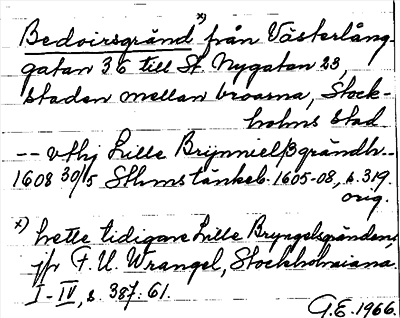 Bedoirsgränd x) från Västerlång-
gatan 36 till St. Nygatan 23,
staden mellan broarna, Stock-
holms stad
-- vthj Lille Brynnielßgrändh --
1608 30/5 Sthms tänkeb. 1605-08, s. 319.
orig.
x) hette tidigare Lille Bryngelsgränden,
jfr F. U. Wrangel, Stockholmiana
I-IV, s. 387. 61.
G.E. 1966.